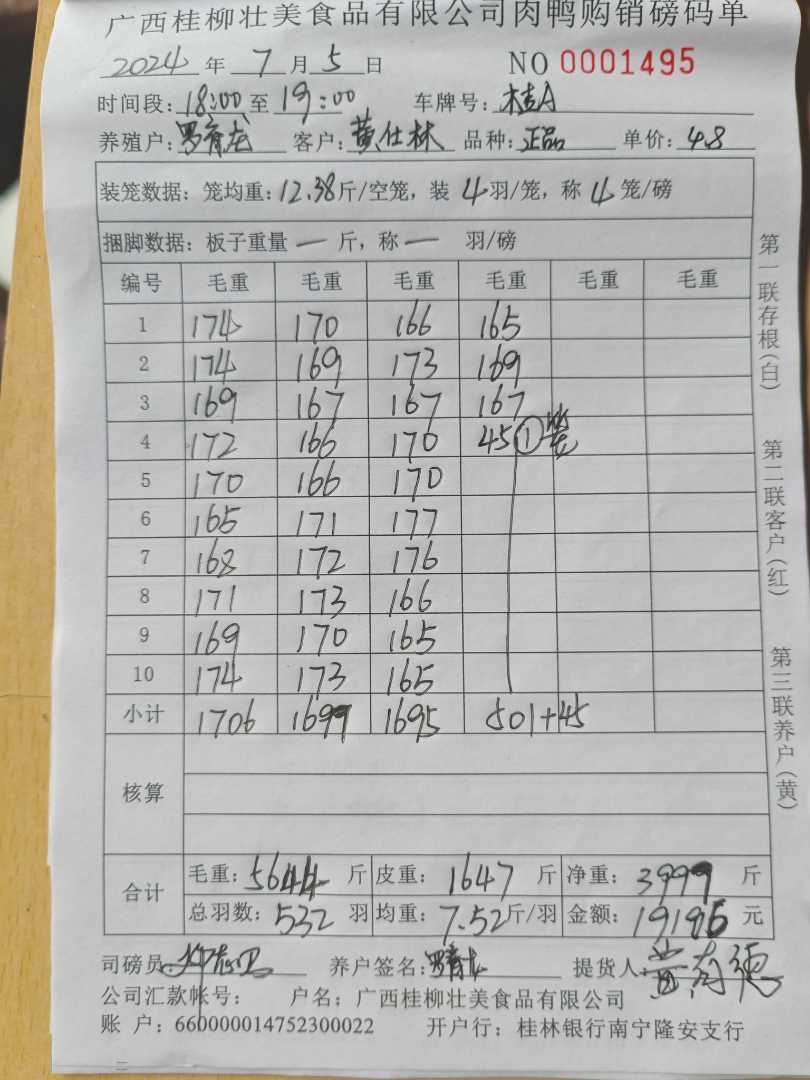 广西桂柳壮美食品有限公司肉鸭购销磅码单
2024 年 7 月 5 日 NO 0001495
时间段: 18:00 至 19:00 车牌号: 桂A
养殖户: 罗育龙 客户: 黄仕林 品种: 正品 单价: 4.8
装笼数据: 笼均重: 12.38 斤/空笼, 装 4 羽/笼, 称 4 笼/磅
捆脚数据: 板子重量 — 斤, 称 — 羽/磅
编号 毛重 毛重 毛重 毛重 毛重 毛重
1 174 170 166 165
2 174 169 173 169
3 169 167 167 167
4 172 166 170 45 ①笼
5 170 166 170
6 165 171 177
7 168 172 176
8 171 173 166
9 169 170 165
10 174 173 165
小计 1706 1699 1695 501+45
核算
合计 毛重: 5644 斤 皮重: 1647 斤 净重: 3999 斤
总羽数: 532 羽 均重: 7.52 斤/羽 金额: 19195 元
司磅员 养户签名: 罗育龙 提货人
公司汇款帐号: 户名: 广西桂柳壮美食品有限公司
账 户: 660000014752300022 开户行: 桂林银行南宁隆安支行
第一联存根(白)
第二联客户(红)
第三联养户(黄)